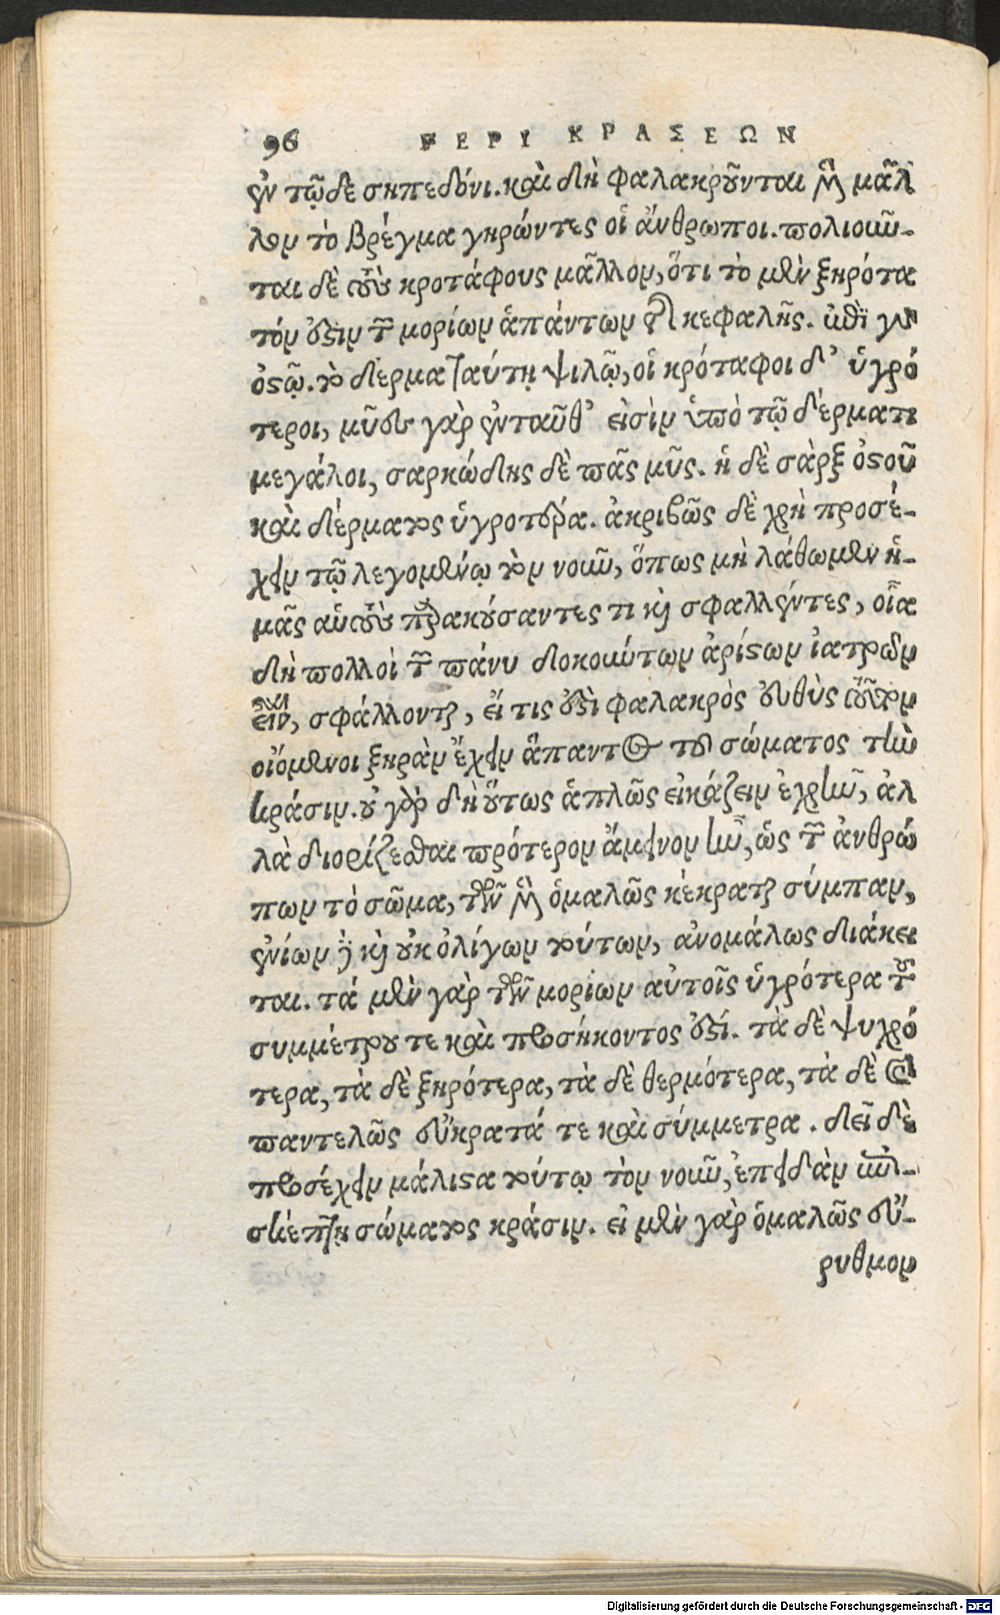 96 ΠΕΡΙ ΚΡΑΣΕΩΝ
ἐν τῷδε σηπεδόνι. καὶ δὴ φαλακροῦνται μὲν μᾶλ
λον τὸ βρέγμα γηρῶντες οἱ ἄνθρωποι. πολιοῦν-
ται δὲ τοὺς κροτάφους μᾶλλον, ὅτι τὸ μὲν ξηρότα
τόν ἐστιν τῶν μορίων ἁπάντων τῆς κεφαλῆς. ἐπὶ γὰρ
ὀστῷ τὸ δέρμα ταύτῃ ψιλῷ, οἱ κρόταφοι δ’ ὑγρό
τεροι, μῦες γὰρ ἐνταῦθ’ εἰσὶν ὑπὸ τῷ δέρματι
μεγάλοι, σαρκώδης δὲ πᾶς μῦς. ἡ δὲ σὰρξ ὀστοῦ
καὶ δέρματος ὑγροτέρα. ἀκριβῶς δὲ χρὴ προσέ-
χειν τῷ λεγομένῳ τὸν νοῦν, ὅπως μὴ λάθωμεν ἡ-
μᾶς αὐτοὺς παρακούσαντες τι καὶ σφαλλέντες, οἷα
δὴ πολλοὶ τῶν πάνυ δοκούντων ἀρίστων ἰατρῶν
εἶναι, σφάλλονται, εἴ τις ἐστὶ φαλακρὸς εὐθὺς τοῦτον
οἰόμενοι ξηρὰν ἔχειν ἅπαντος τοῦ σώματος τὴν
κράσιν. οὐ γὰρ δὴ οὕτως ἁπλῶς εἰκάζειν ἐχρῆν, ἀλ
λὰ διορίζεσθαι πρότερον ἄμεινον ἦν, ὡς τῶν ἀνθρώ
πων τὸ σῶμα, τινῶν μὲν ὁμαλῶς κέκραται σύμπαν,
ἐνίων δὲ καὶ οὐκ ὀλίγων τούτων, ἀνομάλως διάκει
ται. τά μὲν γὰρ τινῶν μορίων αὐτοῖς ὑγρότερα τοῦ
συμμέτρου τε καὶ προσήκοντος ἐστί. τὰ δὲ ψυχρό
τερα, τὰ δὲ ξηρότερα, τὰ δὲ θερμότερα, τὰ δὲ καὶ
παντελῶς εὔκρατά τε καὶ σύμμετρα. δεῖ δὲ
προσέχειν μάλιστα τούτῳ τὸν νοῦν, ἐπειδὰν ἐπι-
σκέπτῃ σώματος κράσιν. εἰ μὲν γὰρ ὁμαλῶς εὔ-
ρυθμον
Digitalisierung gefördert durch die Deutsche Forschungsgemeinschaft - DFG